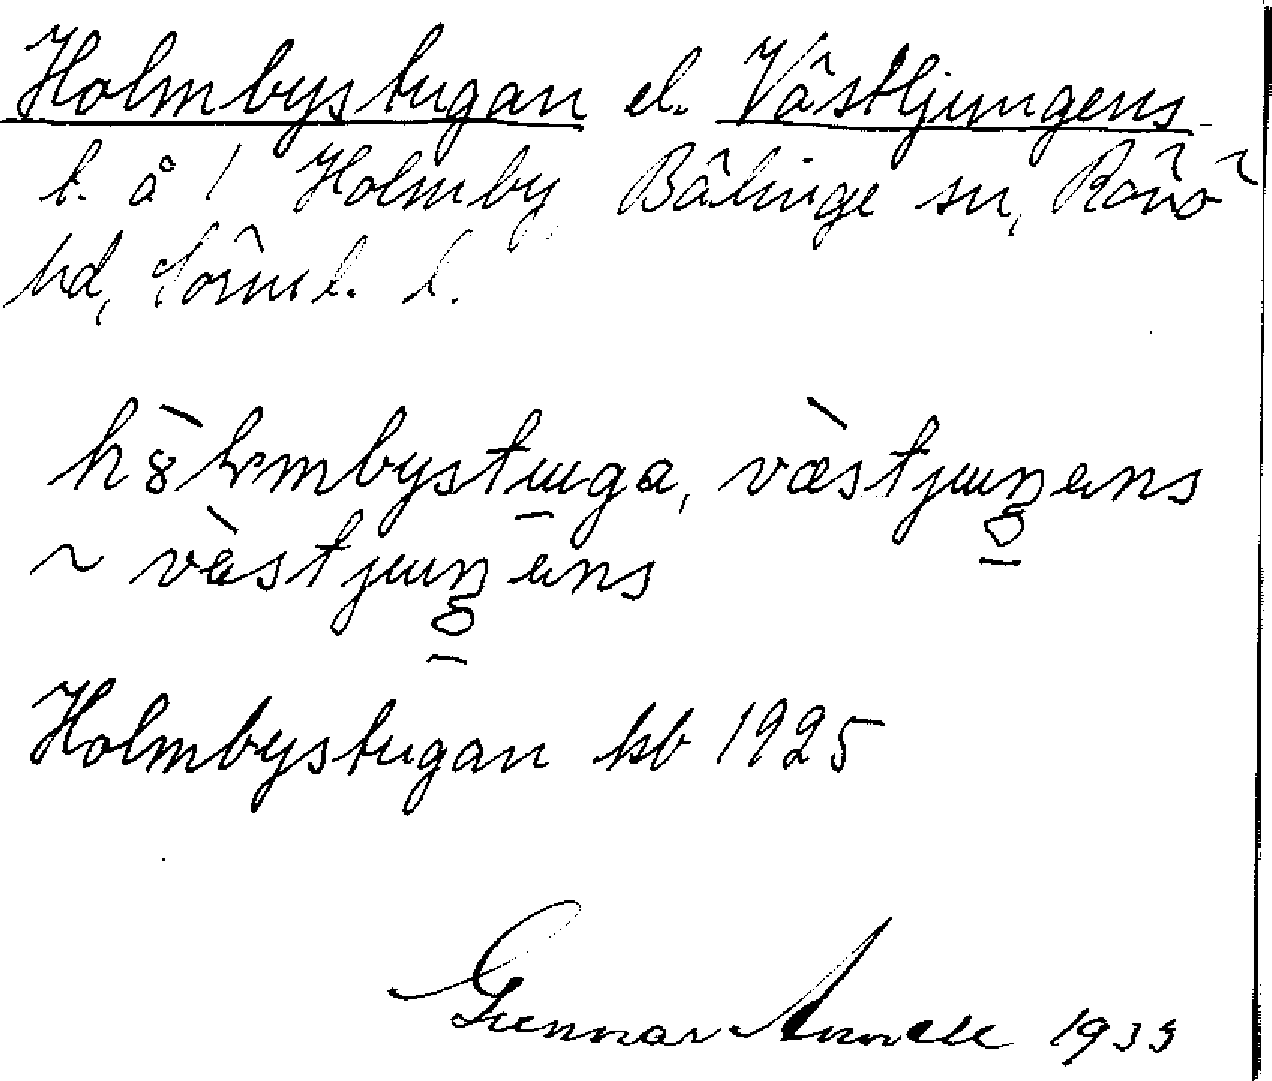 Holmbystugan el. Västljungens
t. å 1 Holmby, Bälinge sn, Rönö
hd, Sörml. l.
hò̤lmbystuga, vàstjuŋens
~ vèstjuŋens
Holmbystugan kb 1925
Gunnar 1935